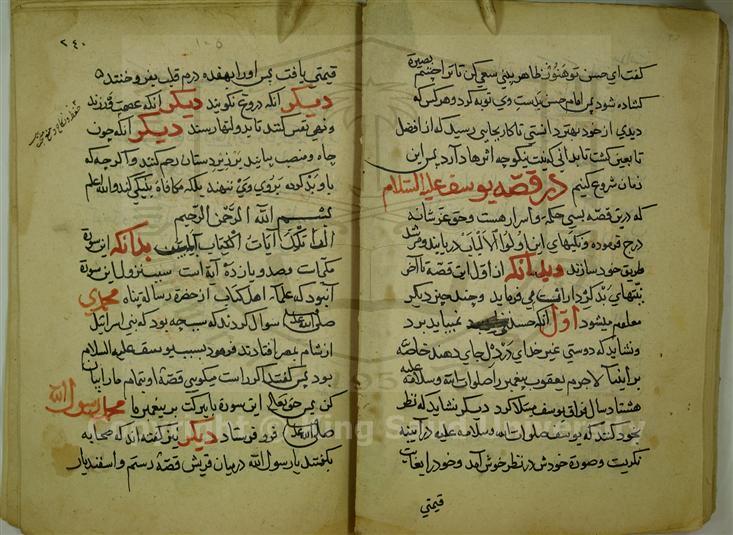 گفت ای حسن تو هنوز ظاهر بینی سعی کن تا ترا چشم بصیرة
گشاده شود پس امام حسن بدست وی توبه کرد و هر کس که
دیدی از خود بهتر دانستی تا کار بجایی رسید که از افضل
تابعین گشت تا بدانی که نیت نیکو چه اثرها دارد پس این
زمان شروع کنیم در قصه یوسف علیه السلام
که درین قصه بسی حکم و اسرار هست و حق عز شانه
درج فرموده و نکتهای این اولوا الالباب دریابند و مرشد
طریق خود سازند و بدانکه از اول این قصه تا آخر
می فرماید و چند چیز دیگر
معلوم میشود اول آنکه حسد نمی باید برد
و نشاید که دوستی غیر خدای در دل جای دهند خاصه
بر انبیا لاجرم یعقوب پیغمبر را صلوات الله و سلامه علیه
هشتاد سال بفراق یوسف مبتلا کرد دیگر نشاید که نظر
بخود کنند که یوسف صلوات الله و سلامه علیه در آیینه
نگریست و صورة خودش در نظر خوش آمد و خود را بغایت
قیمتی
۲۴۰
قیمتی یافت پس او را بهفده درم قلب بفروختند
دیگر آنکه دروغ نگویند دیگر آنکه عفت ورزند
و نهی نفس کنند تا بدولتها رسند دیگر آنکه چون
جاه و منصب یابند بر زیردستان رحم کنند و اگر چه که
با وی بد کرده بروی وی ننهند بلکه مکافاة بنیکی کند والله اعلم
بسم الله الرحمن الرحیم
الر تلک آیات الکتاب المبین بدانکه این سورة
مکیست و صد و یازده آیة است سبب نزول این سورة
آن بود که علماء اهل کتاب از حضرة رسالة پناه محمدی
صلی الله علیه سوال کردند که سبب چه بود که بنی اسرائیل
از شام بمصر افتادند فرمود بسبب یوسف علیه السلام
بود پس گفتند اگر راست میگویی قصه او تمام ما را بیان
کن پس حق تعالی این سورة با برکت بر پیغمبر ما محمد رسول الله
صلی الله علیه فرو فرستاد دیگر نیز گفته اند که صحابه
گفتند یا رسول الله در میان قریش قصه رستم و اسفندیار
Copyright © King Saud University